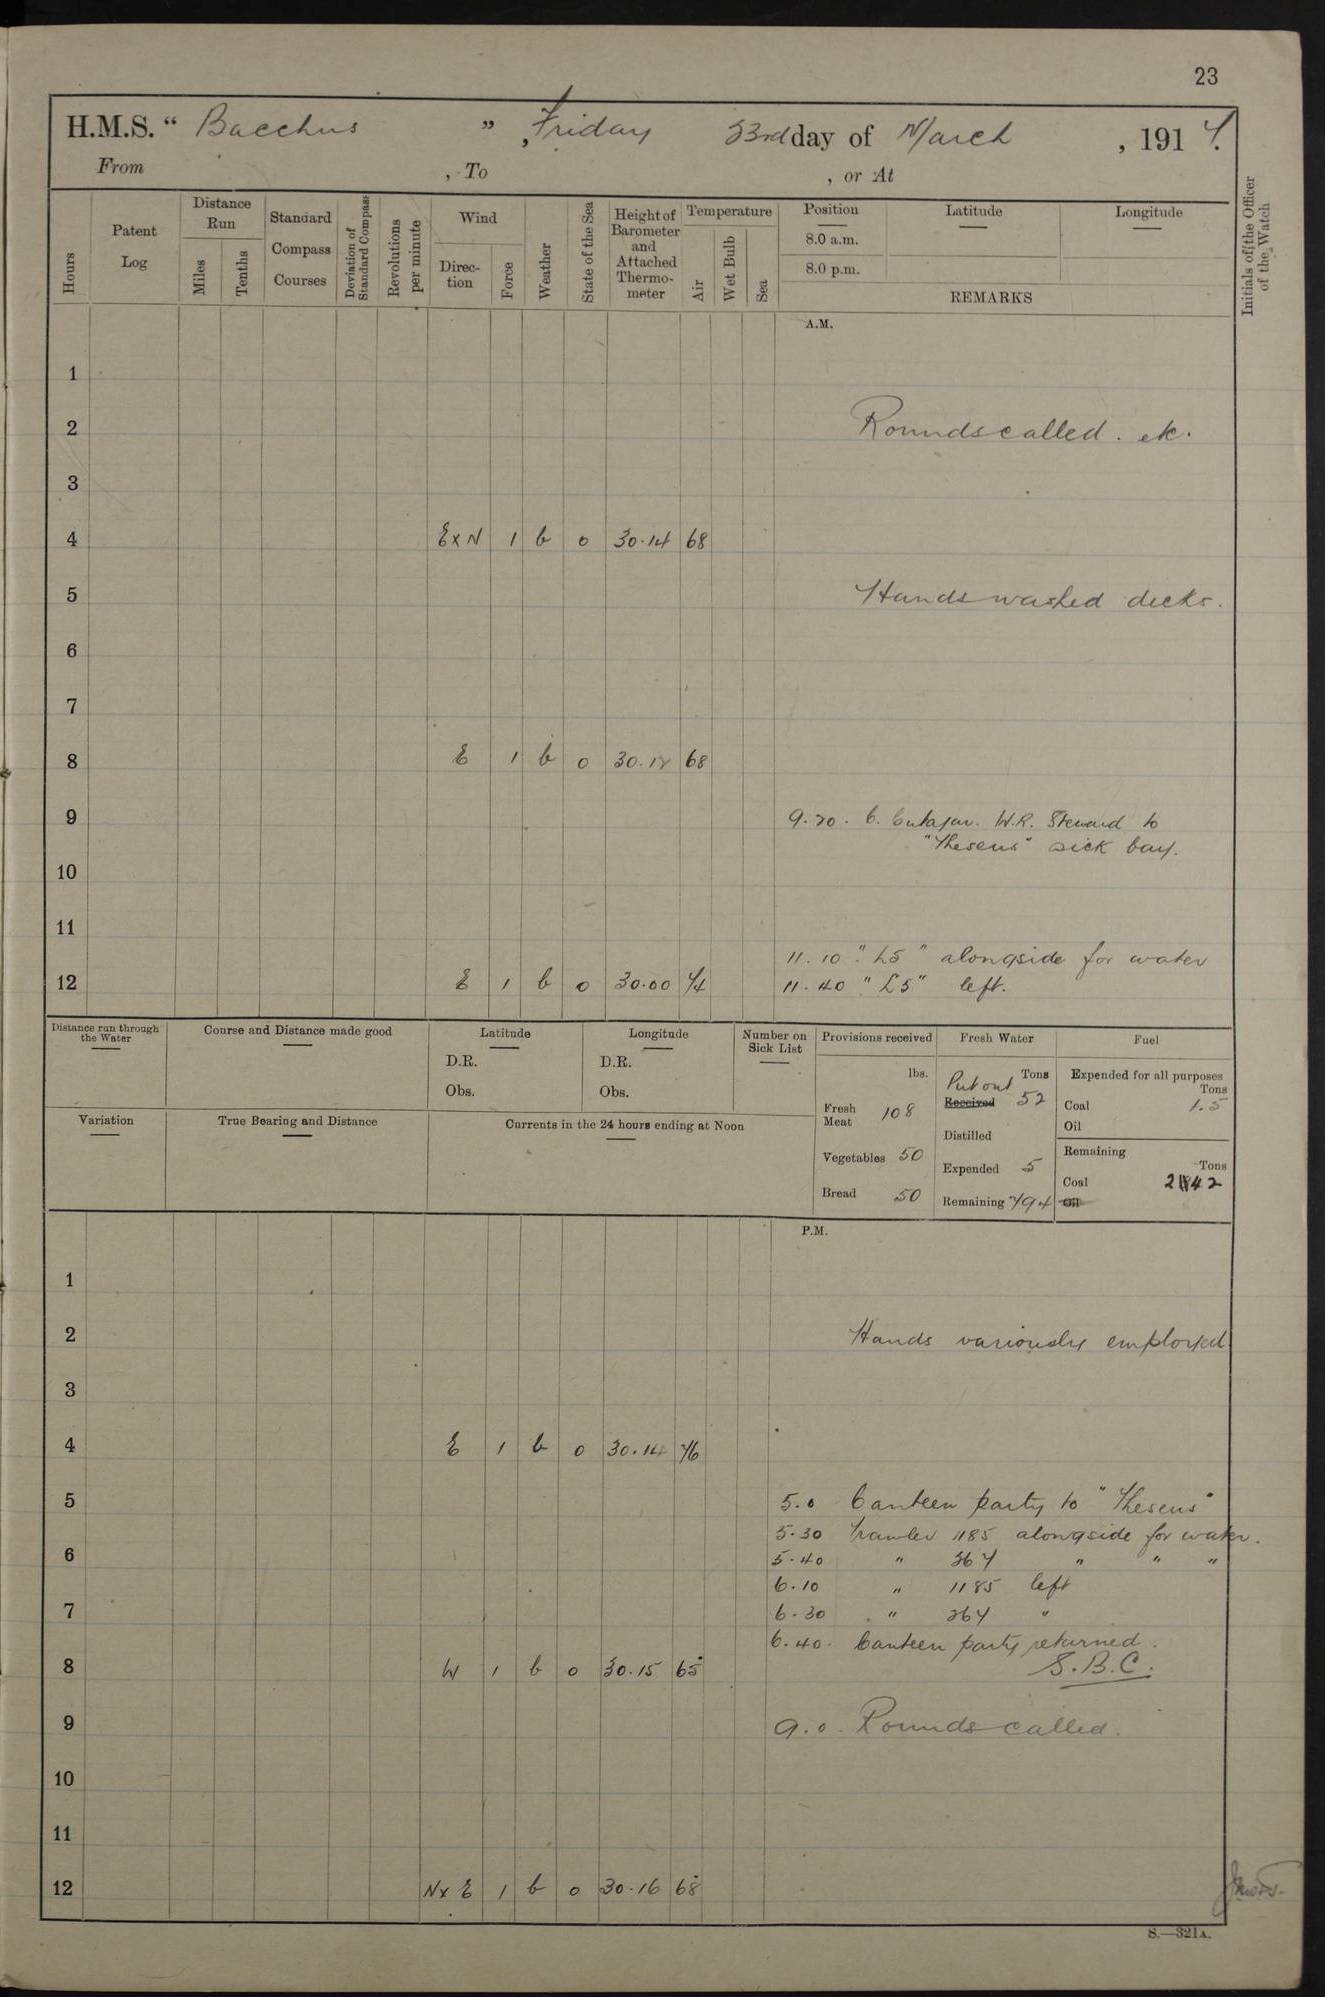 23
H.M.S. “ Bacchus ” , Friday 23rd day of March , 1917.
From , To , or At
Hours
Patent Log
Distance Run
Miles
Tenths
Standard Compass Courses
Deviation of Standard Compass
Revolutions per minute
Wind
Direc-tion
Force
Weather
State of the Sea
Height of Barometer and Attached Thermo-meter
Temperature
Air
Wet Bulb
Sea
Position Latitude Longitude
8.0 a.m.
8.0 p.m.
REMARKS
Initials of the Officer of the Watch
A.M.
1
2 Rounds called. etc.
3
4 ExN 1 b 0 30.14 68
5 Hands washed decks.
6
7
8 E 1 b 0 30.18 68
9 9.20. C. W.R. Steward to
"Theseus" sick bay.
10
11
11.10 "L5" alongside for water
12 E 1 b 0 30.00 74 11.40 "L5" left.
Distance run through the Water
Course and Distance made good
Latitude
D.R.
Obs.
Longitude
D.R.
Obs.
Number on Sick List
Provisions received
lbs.
Fresh Meat 108
Vegetables 50
Bread 50
Fresh Water
Tons
Put out
Received 52
Distilled
Expended 5
Remaining 794
Fuel
Expended for all purposes
Tons
Coal 1.5
Oil
Remaining
Tons
Coal
Oil
Variation
True Bearing and Distance
Currents in the 24 hours ending at Noon
P.M.
1
2 Hands variously employed
3
4 E 1 b 0 30.14 76
5 5.0 Canteen party to "Theseus"
5.30 Trawler 1185 alongside for water.
6 5.40 " 367 " " "
6.10 " 1185 left
7 6.30 " 367 "
6.40. Canteen party returned.
8 W 1 b 0 30.15 65 S.B.C.
9 9.0. Rounds called.
10
11
12 NxE 1 b 0 30.16 68
S.—321A.